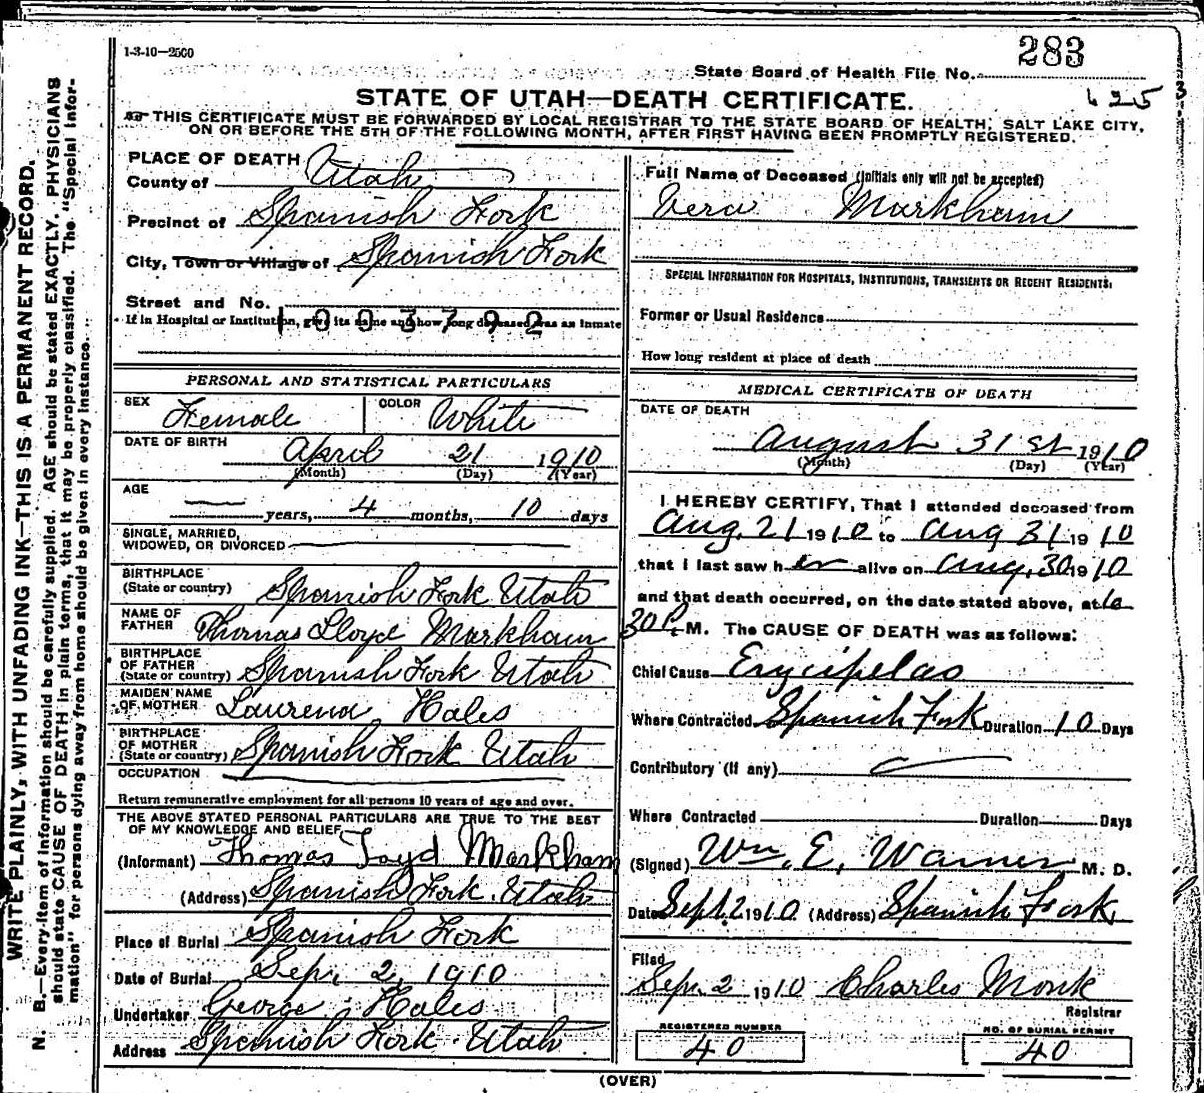 1-3-10-2500
283
State Board of Health File No.
625
STATE OF UTAH—DEATH CERTIFICATE.
THIS CERTIFICATE MUST BE FORWARDED BY LOCAL REGISTRAR TO THE STATE BOARD OF HEALTH, SALT LAKE CITY,
ON OR BEFORE THE 5TH OF THE FOLLOWING MONTH, AFTER FIRST HAVING BEEN PROMPTLY REGISTERED.
WRITE PLAINLY, WITH UNFADING INK—THIS IS A PERMANENT RECORD.
N. B.—Every item of information should be carefully supplied. AGE should be stated EXACTLY. PHYSICIANS
should state CAUSE OF DEATH in plain terms, that it may be properly classified. The "Special Infor-
mation" for persons dying away from home should be given in every instance.
PLACE OF DEATH
County of Utah
Precinct of Spanish Fork
City, Town or Village of Spanish Fork
Street and No.
If in Hospital or Institution, give its name and how long deceased was an inmate
1003792
PERSONAL AND STATISTICAL PARTICULARS
SEX Female COLOR White
DATE OF BIRTH
April 21 1910
(Month) (Day) (Year)
AGE
— years, 4 months, 10 days
SINGLE, MARRIED,
WIDOWED, OR DIVORCED
BIRTHPLACE
(State or country) Spanish Fork Utah
NAME OF
FATHER Thomas Lloyd Markham
BIRTHPLACE
OF FATHER
(State or country) Spanish Fork Utah
MAIDEN NAME
OF MOTHER Laurena Hales
BIRTHPLACE
OF MOTHER
(State or country) Spanish Fork Utah
OCCUPATION
Return remunerative employment for all persons 10 years of age and over.
THE ABOVE STATED PERSONAL PARTICULARS ARE TRUE TO THE BEST
OF MY KNOWLEDGE AND BELIEF
(Informant) Thomas Loyd Markham
(Address) Spanish Fork Utah
Place of Burial Spanish Fork
Date of Burial Sep. 2, 1910
Undertaker George Hales
Address Spanish Fork Utah
Full Name of Deceased (Initials only will not be accepted)
Vera Markham
SPECIAL INFORMATION FOR HOSPITALS, INSTITUTIONS, TRANSIENTS OR RECENT RESIDENTS:
Former or Usual Residence
How long resident at place of death
MEDICAL CERTIFICATE OF DEATH
DATE OF DEATH
August 31st 1910
(Month) (Day) (Year)
I HEREBY CERTIFY, That I attended deceased from
Aug. 21 1910 to Aug 31 1910
that I last saw her alive on Aug. 30 1910
and that death occurred, on the date stated above, at 6
30 P. M. The CAUSE OF DEATH was as follows:
Chief Cause Erycipelas
Where Contracted Spanish Fork Duration 10 Days
Contributory (If any)
Where Contracted Duration Days
(Signed) Wm. E. Warner M. D.
Date Sept. 2 1910 (Address) Spanish Fork
Filed
Sep. 2 1910 Charles Monk
Registrar
REGISTERED NUMBER
40
NO. OF BURIAL PERMIT
40
(OVER)